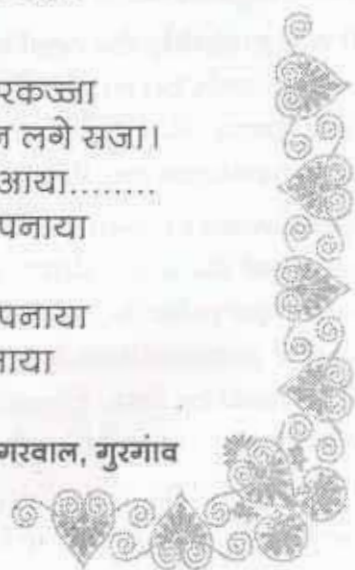 रकज्जा
न लगे सजा।
आया........
पनाया
पनाया
नाया
गरवाल, गुरगांव